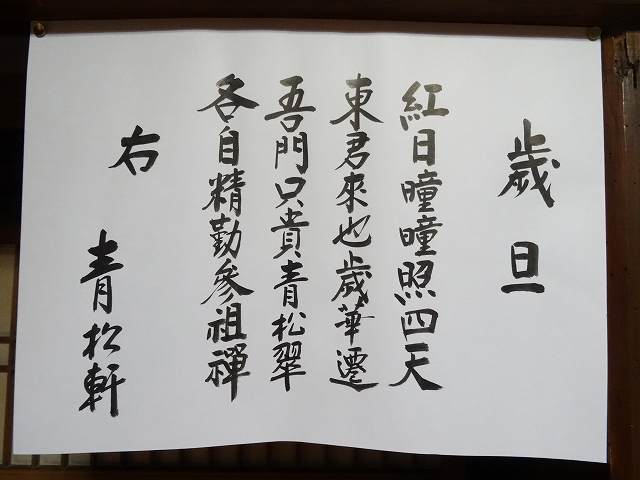 歳旦
紅日曈曈照四天
東君來也歳華遷
吾門只貴青松翠
各自精勤參祖禪
右 青松軒